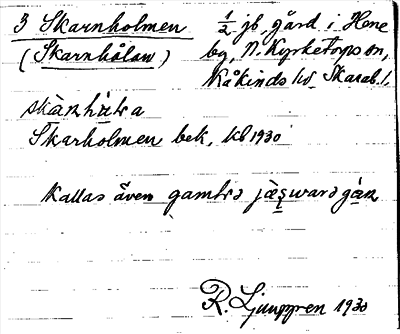 3 Skarnholmen
(Skarnhålan)
1/2 jb, gård i Hene
by, N. Kyrketorps sn,
Kåkinds hd Skarab. l.
Skarholmen bek, 1930
kallas även gamla
R. Ljunggren 1930